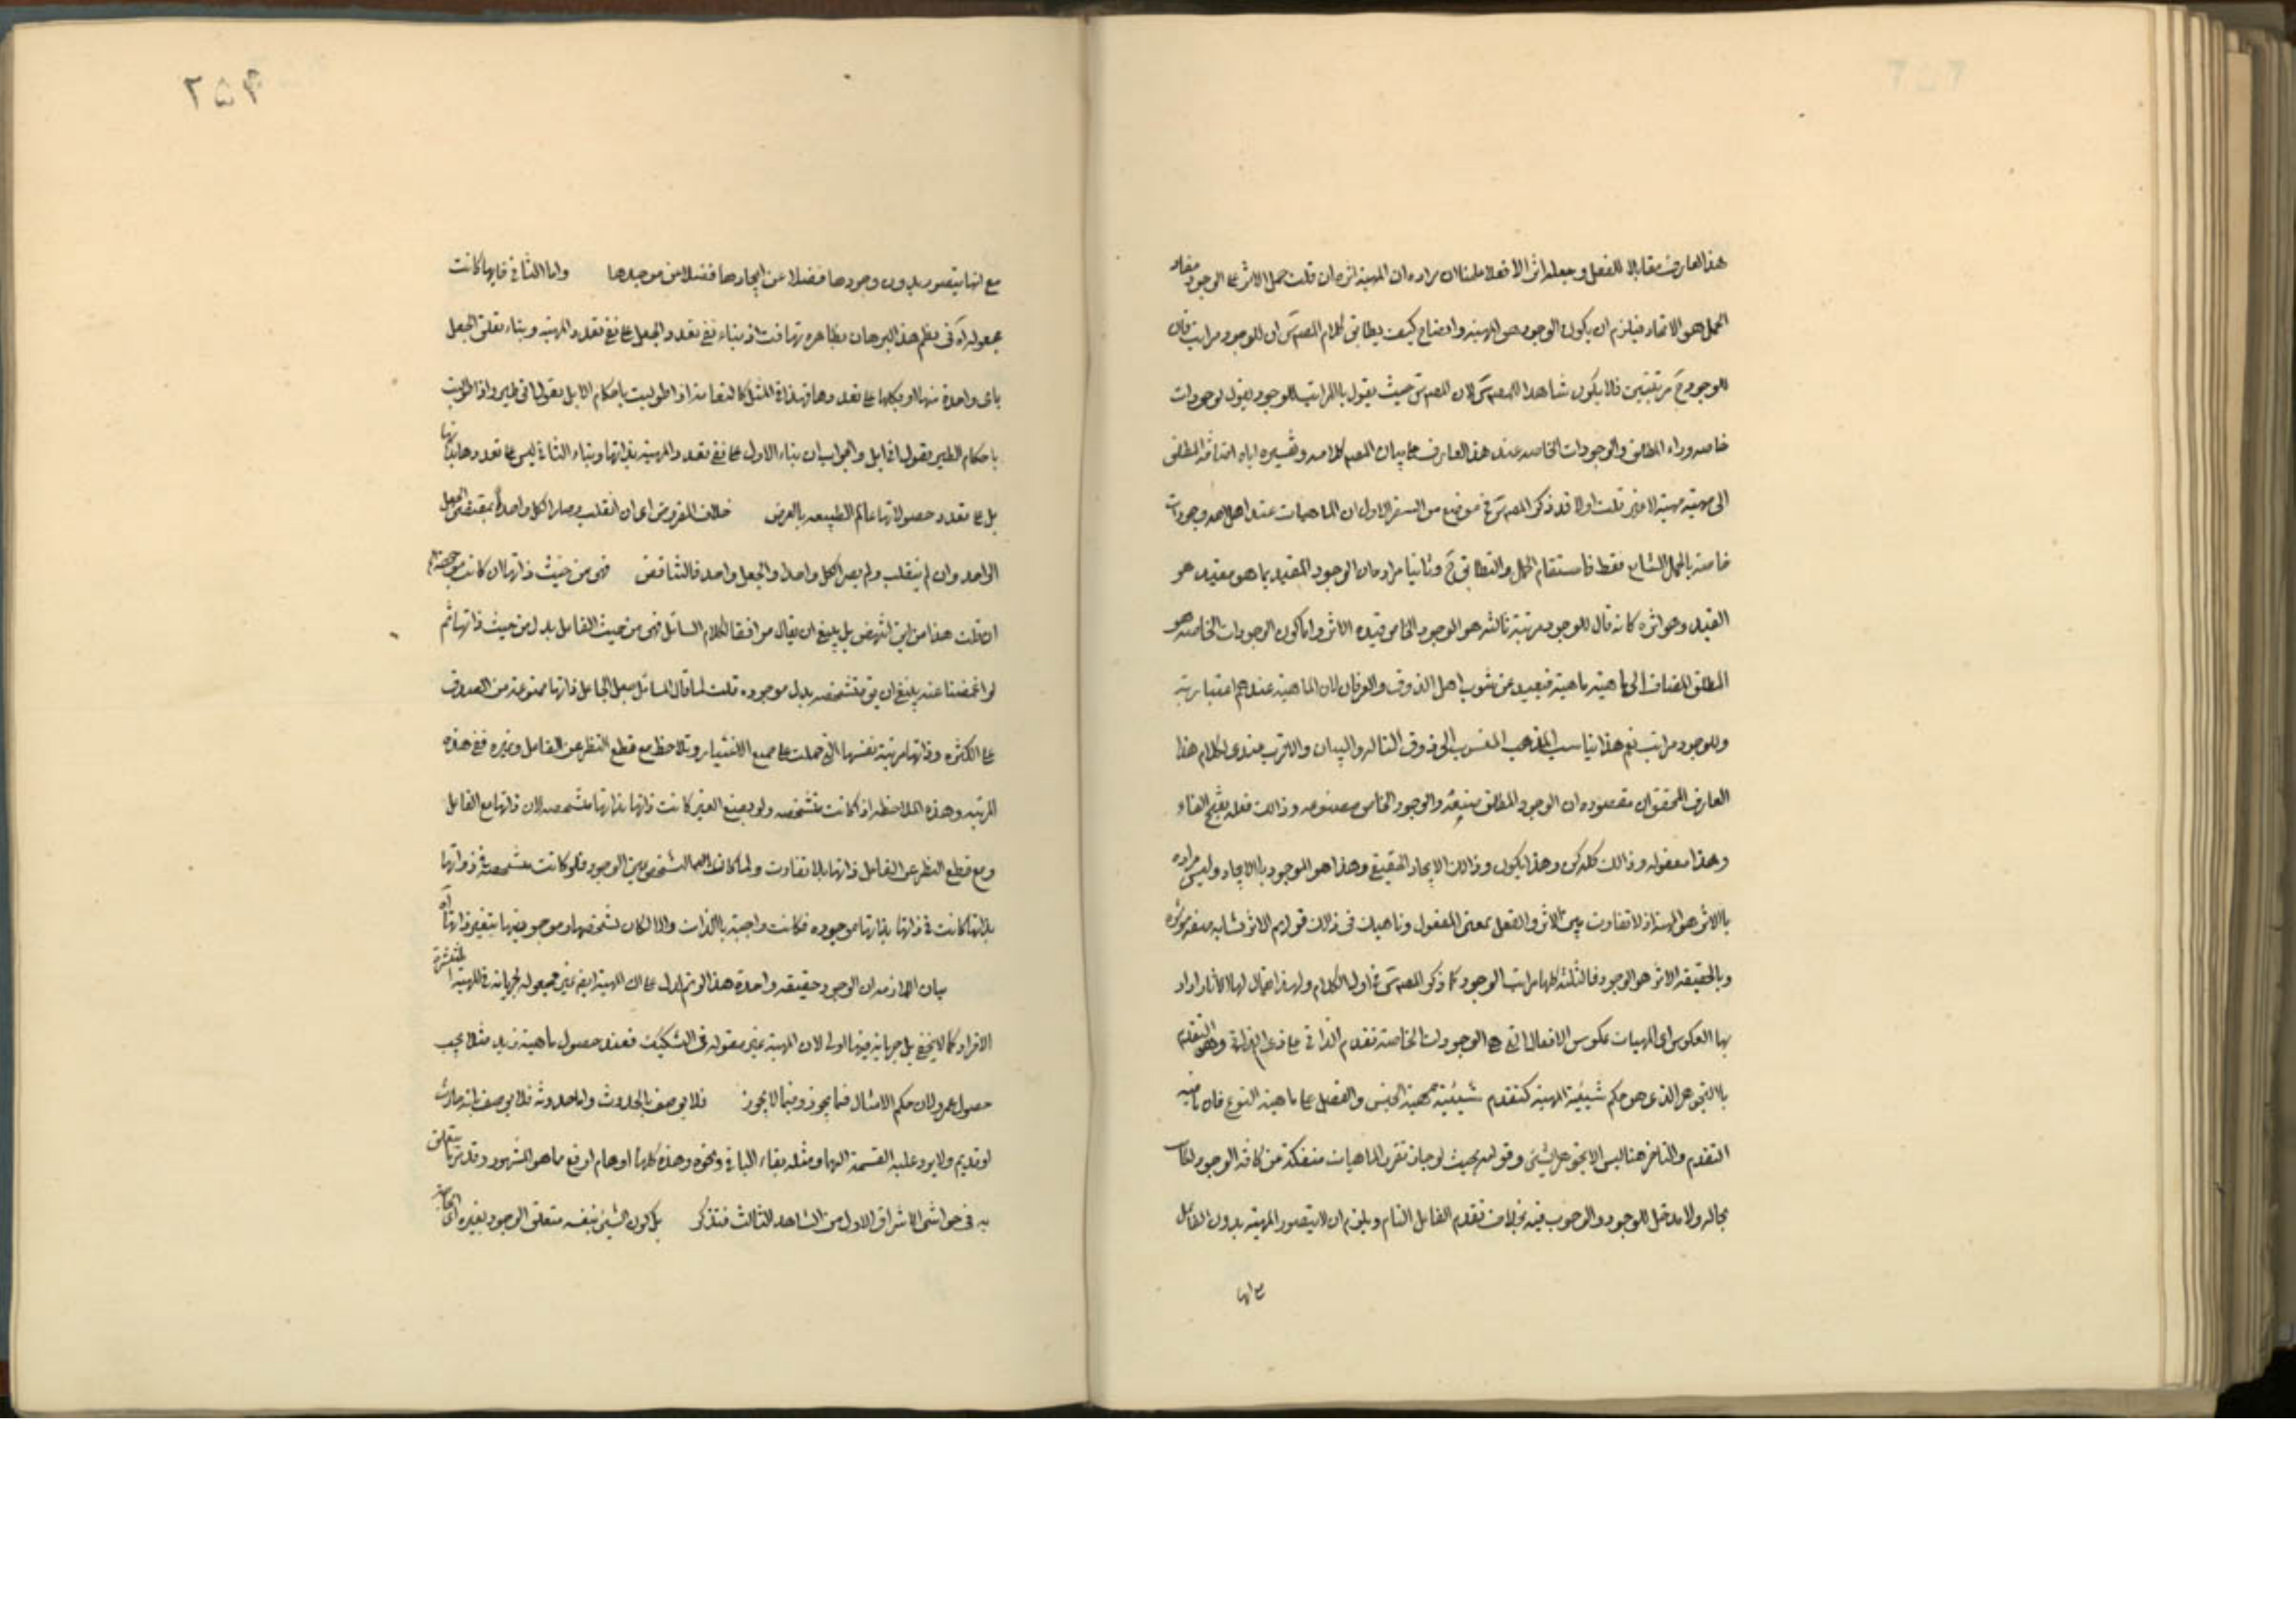 هذا العارف مقابلا للفعل وجعله اثر الأفعلا علمنا ان مراده ان المهية اثره ان قلت حمل الاثر على الوجود مفاد
الحمل هو الاتحاد فيلزم ان يكون الوجود هو المهية وايضا كيف يطابق كلام المصه س ان للوجود مراتب فان
للوجود ح مرتبتين فلا يكون شاهدا للمصه س لان المصه س حيث يقول بالمراتب للوجود يقول بوجودات
خاصه وراء المطلق والوجودات الخاصه عند هذا العارف على بيان المصه كلامه وتفسيره اياه اضافة المطلق
الى مهية مهية لا غير قلت اولا قد ذكر المصه س فى موضع من السفر الاول ان الماهيات عند اهل الله وجودات
خاصة بالحمل الشايع فقط فاستقام الحمل والتطابق ح وثانيا مراده ان الوجود المقيد بما هو مقيد هو
القيد وهو اثره كانه قال للوجود مرتبة ثالثه هو الوجود الخاص قيده الاثر واما كون الوجودات الخاصه هو
المطلق المضاف الى ماهية ماهية فبعيد عن شوب اهل الذوق والعرفان لان الماهية عندهم اعتبارية
وللوجود مراتب نعم هذا يناسب المذهب المنسوب الى ذوق التاله والبيان والاقرب عندى لكلام هذا
العارف المحقق ان مقصوده ان الوجود المطلق صنعه والوجود الخاص مصنوعه وذالك فعله بفتح الفاء
وهذا مفعوله وذالك كله كن وهذا يكون وذالك الايجاد الحقيقى وهذا هو الموجود بالايجاد وليس مراده
بالاثر هو المهية اذ لا تفاوت بين الاثر والفعل بمعنى المفعول وناهيك فى ذلك قولهم الاثر يشابه صفه مؤثره
وبالحقيقه الاثر هو الوجود فالثلثه كلها مراتب الوجود كما ذكر المصه س فى اول الكلام ولهذا قال لها الآثار او اراد
بها العكوس اى المهيات عكوس الافعال التى هى الوجودات الخاصة تقدم الذاتى على ذى الذاتى وهو التقدم
بالتجوهر الذى هو حكم شيئية المهية كتقدم شيئية مهية الجنس والفصل على ماهية النوع فان ما فيه
التقدم والتاخر هنا ليس الا تجوهر الشئ وقوامه بحيث لو جاز تقرر الماهيات منفكة عن كافة الوجود لكان
بحاله ولا مدخل للوجود والوجوب فيه بخلاف تقدم الفاعل التام ويلزم ان لا يتصور المهية بدون الفاعل
مع انها
٢٥٤
مع انها يتصور بدون وجودها فضلا عن ايجادها فضلا من موجدها واما الثانى فايها كانت
مجعوله اه فى نظم هذا البرهان بظاهره تهافت اذ بناء نفى تعدد الجعل على نفى تعدد المهية وبناء تعلق الجعل
باى واحدة منها او بكلها على تعددها فهذا فى المثل كالنعامة اذا طولبت باحكام الابل تقول انى طير واذا طولبت
باحكام الطير تقول انى ابل والجواب ان بناء الاول على نفى تعدد المهية بذاتها وبناء الثانى ليس على تعددها بذاتها
بل على تعدد حصولاتها عالم الطبيعه بالعرض خلاف المفروض اى ان انقلب وصار الكل واحدا بمقتضى الجعل
الواحد وان لم ينقلب ولم يصر الكل واحدا والجعل واحد فالتناقض فهى من حيث ذاتها ان كانت موجوده
ان قلت هذا من اين انتهض بل ينبغى ان يقال موافقا لكلام السائل فهى من حيث الفاعل بدل من حيث ذاتها ثم
لو اغمضنا عنه ينبغى ان يق متشخصه بدل موجوده قلت لما قال السائل جعل الجاعل ذاتها ممنوعة من الصدق
على الكثرة وذاتها مرتبة نفسها التى حملت على جميع الاغيار وتلاحظ مع قطع النظر عن الفاعل وغيره ففى هذه
المرتبه وهذه الملاحظه اذا كانت متشخصه ولو بصنع الغير كانت ذاتها بذاتها متشخصه لان ذاتها مع الفاعل
ومع قطع النظر عن الفاعل ذاتها بلا تفاوت ولما كان التشخص عين الوجود فلو كانت متشخصة فى ذواتها
بذاتها كانت فى ذاتها بذاتها موجوده فكانت واجبة بالذات والا لكان تشخصها وموجوديتها بتغير ذاتها اه
بيان الملازمه ان الوجود حقيقه واحدة هذا لو تم لدل على ان المهية ايضا غير مجعوله لجريانه فى المهية المنتشرة
الافراد كما لا يخفى بل جريانه فيها اولى لان المهية غير مقوله فى التشكيك فعند حصول ماهية زيد مثلا يجب
حصول عمرو لان حكم الامثال فيما يجوز وفيما لا يجوز فلا يوصف بالحدوث واما حدوثه فلا يوصف بانه حادث
او قديم ولا يرد عليه القسمة اليها ومثله بقاء الباقى ونحوه وهذه كلها اوهام اوقع ما هو المشهور وقد مر ما يتعلق
به فى حواشى الاشراق الاول من الشاهد الثالث فتذكر بل كون الشئ بنفسه متعلق الوجود بغيره اى